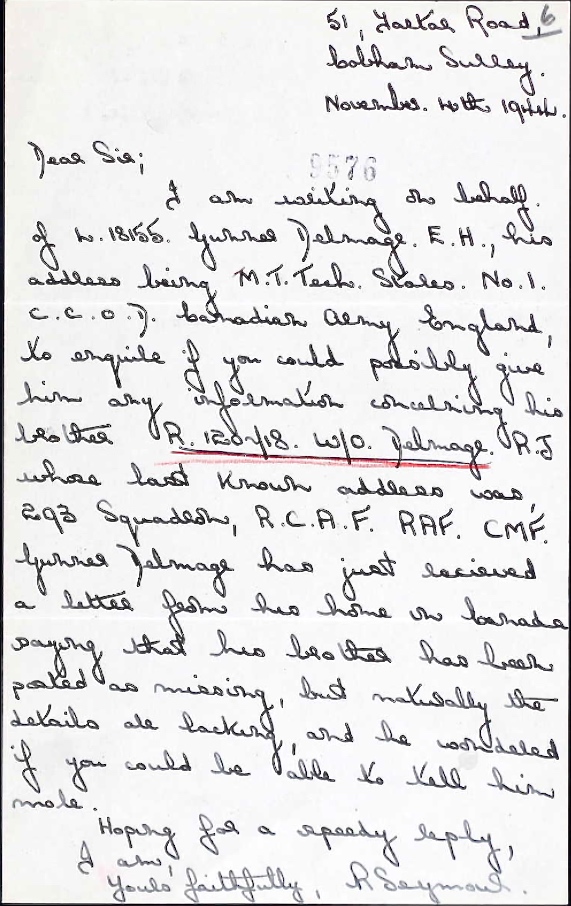 51, Tartar Road, 6
Cobham Surrey.
November. 10th 1944.
Dear Sir;
9576
I am writing on behalf
of L. 18155. Gunner Delmage. E.H., his
address being M.T. Tech. Stores. No. 1.
C.C.O.D. Canadian Army England,
to enquire if you could possibly give
him any information concerning his
brother R. 120718. W/O. Delmage. R.J
whose last known address was,
293 Squadron, R.C.A.F. RAF. CMF.
Gunner Delmage has just recieved
a letter from his home in Canada
saying that his brother has been
posted as missing, but naturally the
details are lacking, and he wondered
if you could be able to tell him
more.
Hoping for a speedy reply,
I am,
Yours faithfully, R Seymour.